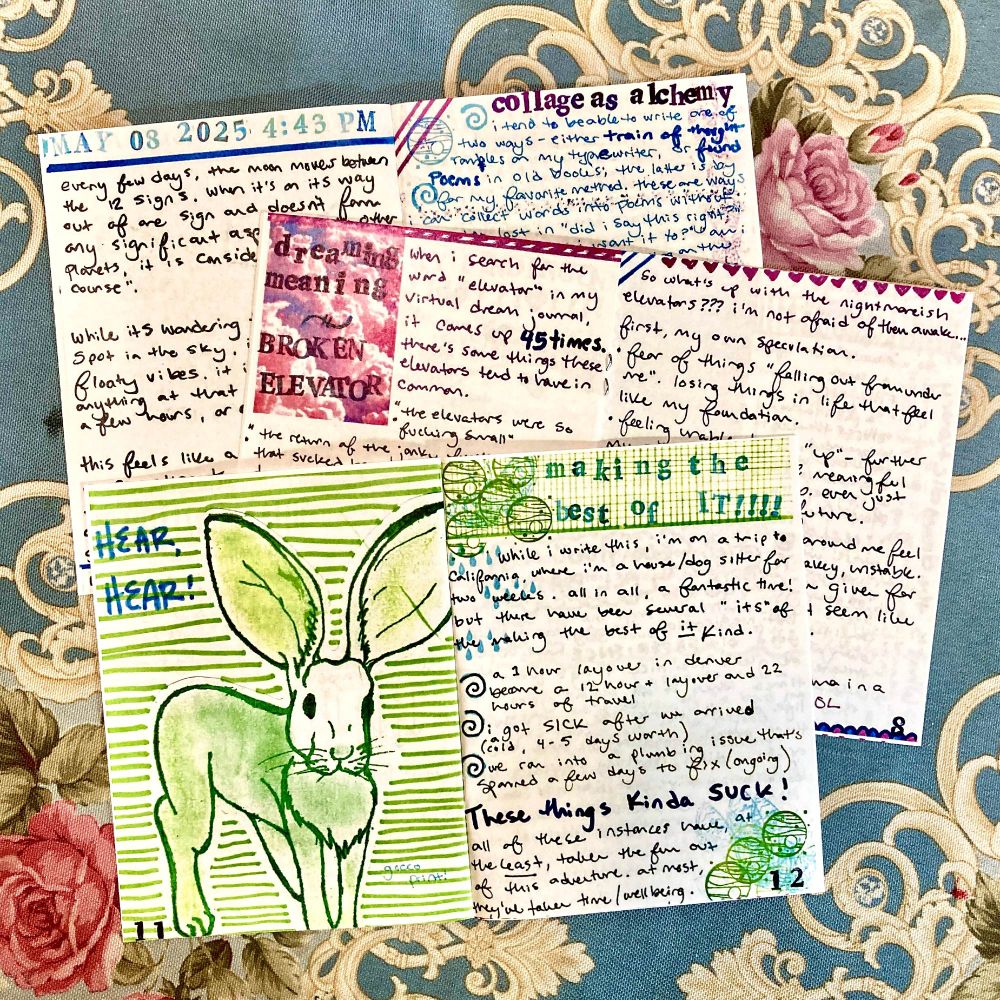 MAY 08 2025 4:43 PM
every few days, the moon moves between
the 12 signs. when it's on its way
out of are sign and doesn't form
any significant asp other
planets, it is conside
course".
while its wandering
spot in the sky, i
floaty vibes. it i
anything at that
a few hours, or
this feels like a
collage as alchemy
i tend to be able to write one of
two ways - either train of thought
rambles on my typewriter, or found
poems in old books; the latter is by
far my favorite method. these are ways
i can collect words into poems without
lost in "did i say this right?
want it to
on the
dreaming
meaning
BROKEN
ELEVATOR
when i search for the
word "elevator" in my
virtual dream journal,
it comes up 95 times.
there's some things these
elevators tend to have in
common.
"the elevators were so
fucking small"
"the return of the janky
that sucked
So what's up with the nightmareish
elevators??? i'm not afraid of them awake...
first, my own speculation.
fear of things "falling out from under
me". losing things in life that feel
like my foundation.
feeling
"up" - further
meaningful
even just
future.
around me feel
unstable.
given for
t seem like
main a
OL
8
HEAR,
HEAR!
gocco
print!
11
making the
best of IT!!!!
while i write this, i'm on a trip to
california, where i'm a house/dog sitter for
two weeks. all in all, a fantastic time!
but there have been several "its" of
the making the best of it kind.
a 1 hour layover in denver
became a 12 hour + layover and 22
hours of travel
i got SICK after we arrived
(a cold, 4-5 days worth)
we ran into a plumbing issue that's
spanned a few days to fix (ongoing)
These things kinda SUCK!
all of these instances have, at
the least, taken the fun out
of this adventure. at most,
they've taken time/wellbeing.
12